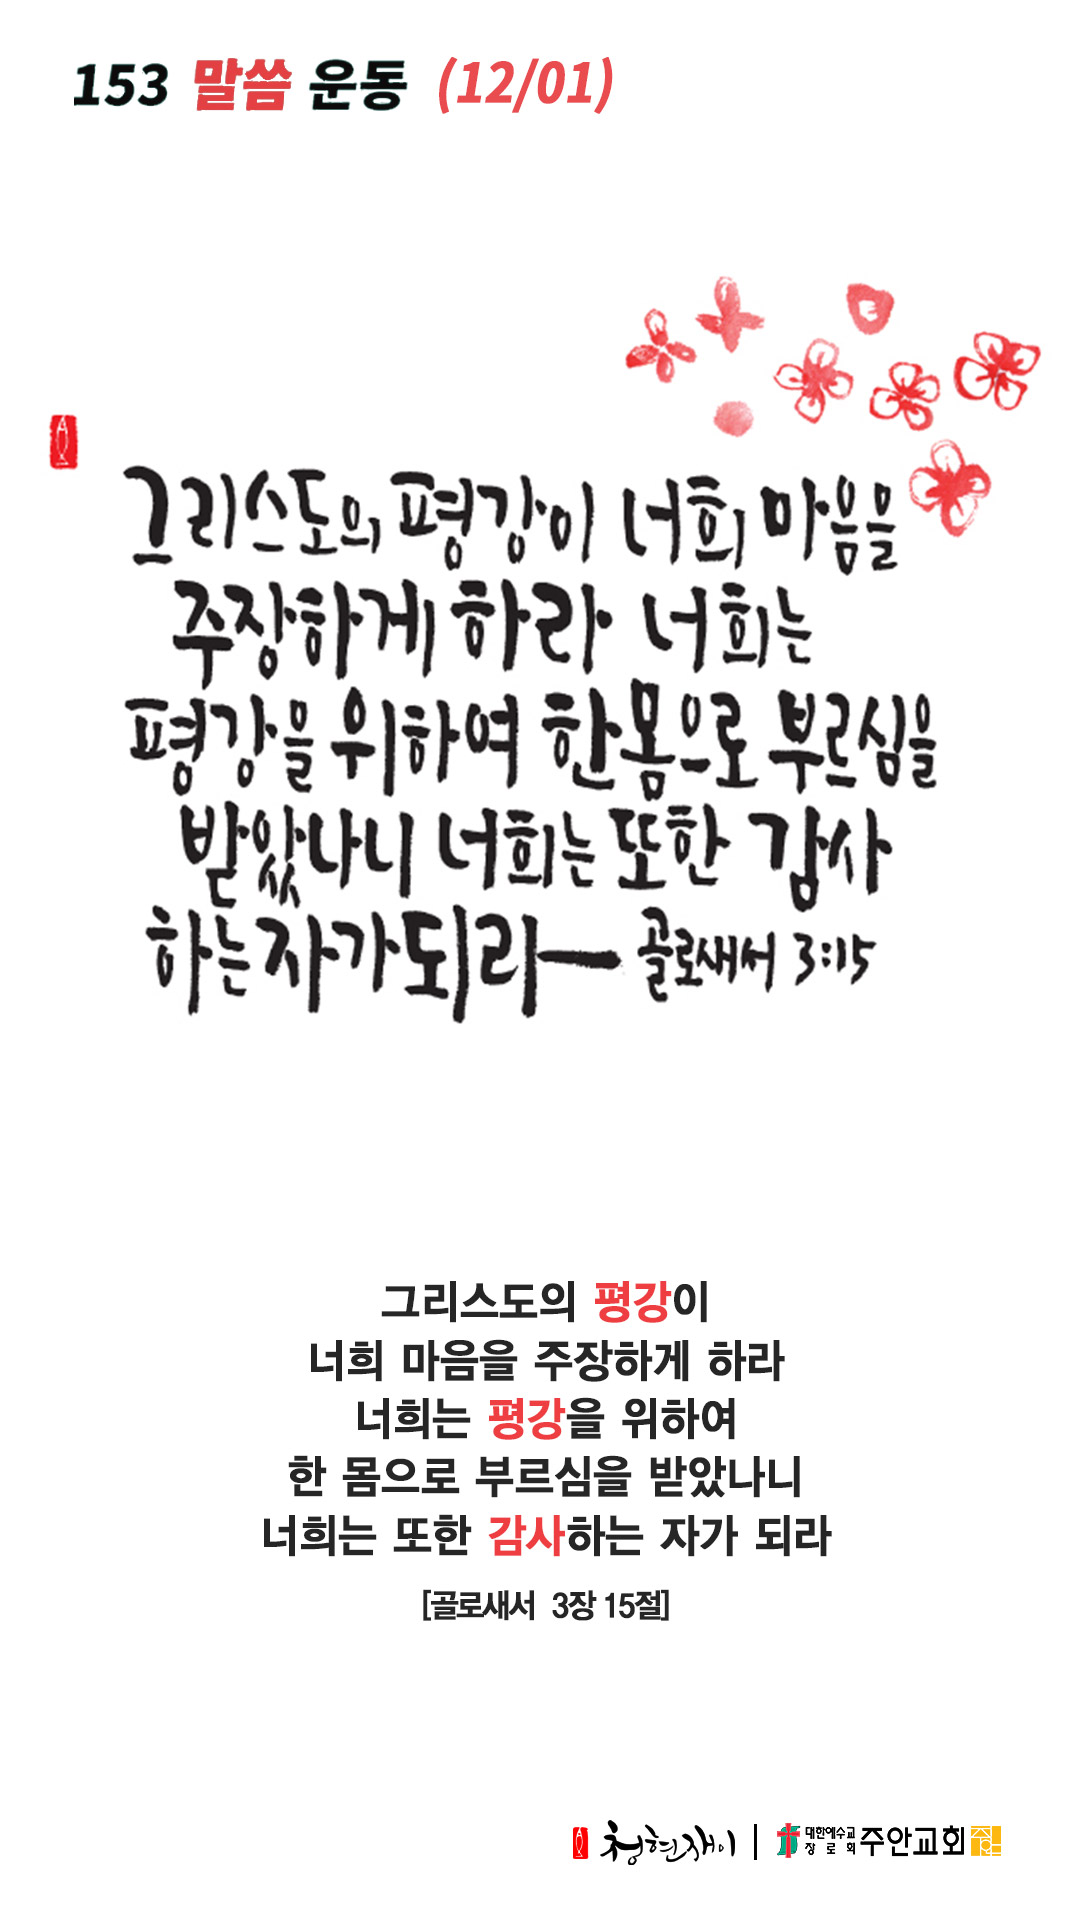 153 말씀 운동 (12/01)
그리스도의 평강이 너희 마음을
주장하게 하라 너희는
평강을 위하여 한 몸으로 부르심을
받았나니 너희는 또한 감사
하는 자가 되라 — 골로새서 3:15
그리스도의 평강이
너희 마음을 주장하게 하라
너희는 평강을 위하여
한 몸으로 부르심을 받았나니
너희는 또한 감사하는 자가 되라
[골로새서 3장 15절]
청현재이 | 대한예수교 장로회 주안교회